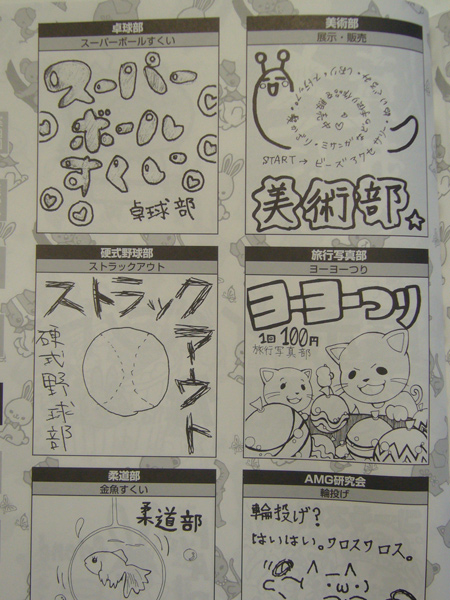 卓球部
スーパーボールすくい
スーパー
ボール
すくい
卓球部
美術部
展示・販売
START→ビーズアクセサリー
美術部
硬式野球部
ストラックアウト
ストラック
アウト
硬式野球部
旅行写真部
ヨーヨーつり
ヨーヨーつり
1回100円
旅行写真部
柔道部
金魚すくい
柔道部
AMG研究会
輪投げ
輪投げ?
はいはい。ワロスワロス。